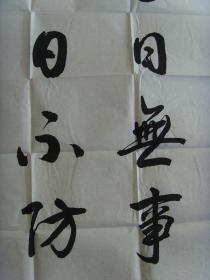 日無事
日不防